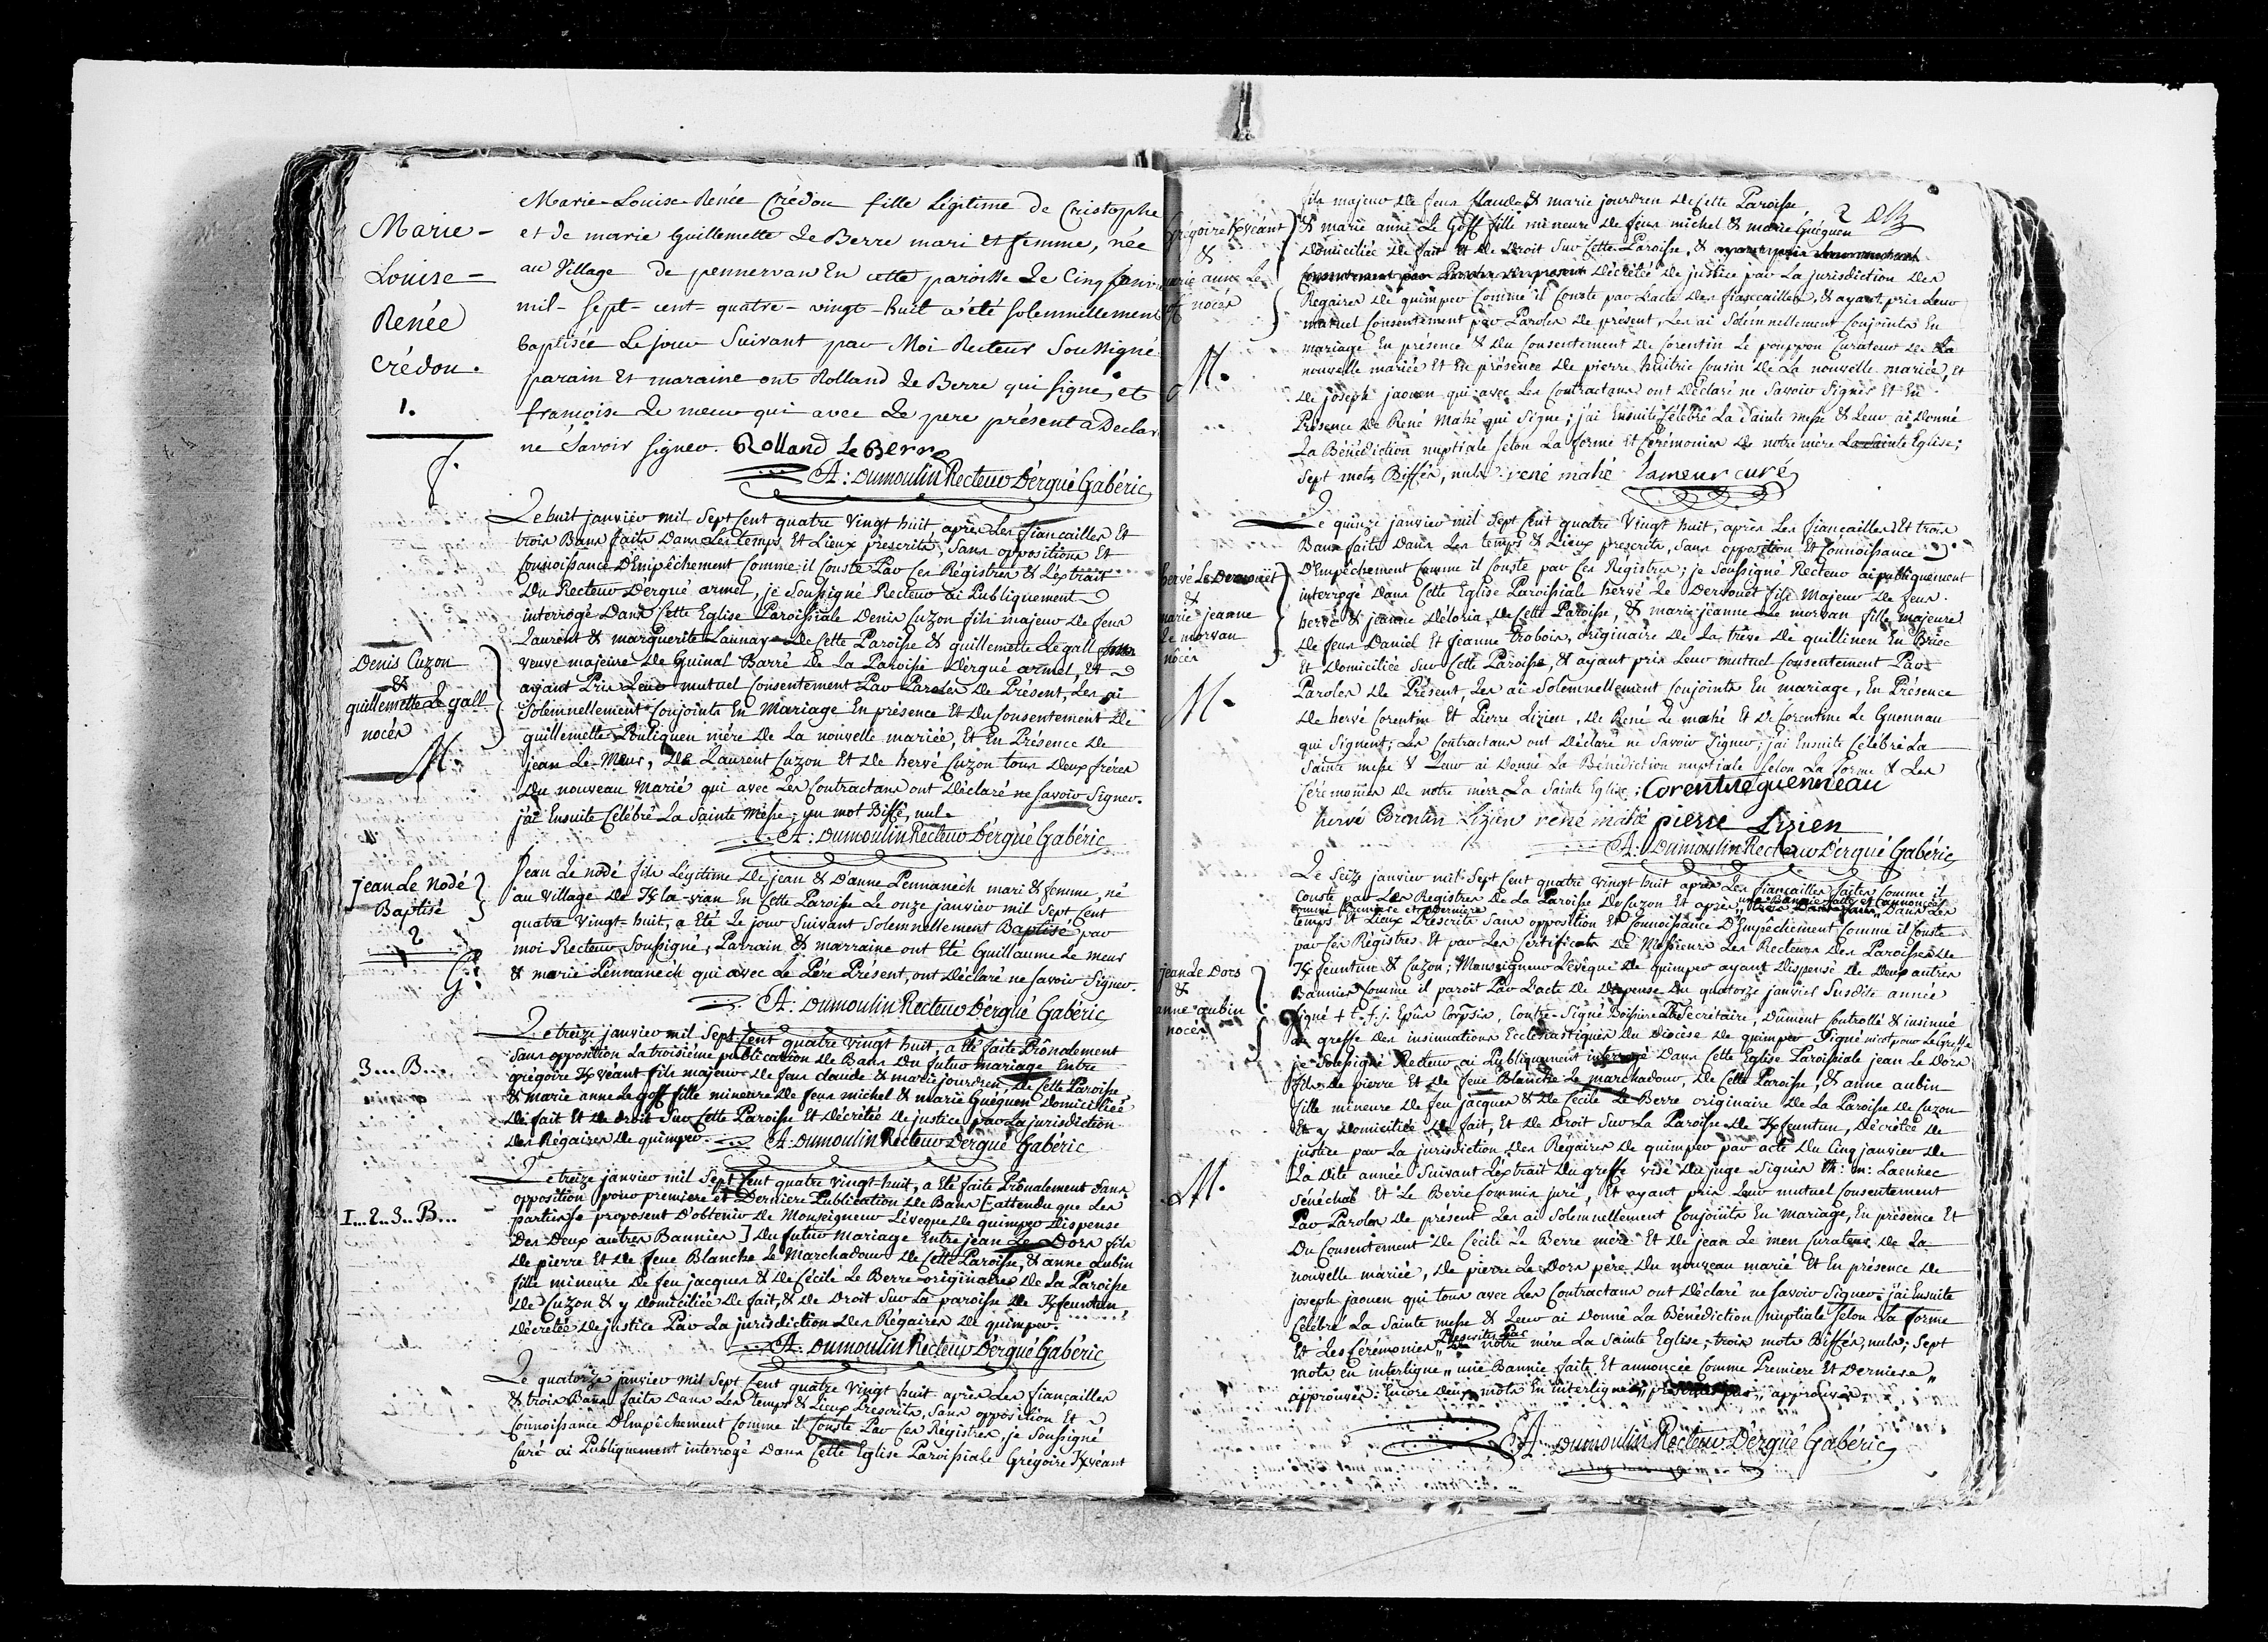 Marie-
Louise-
Renée
Crédou.
1.
f.
Marie-Louise-Renée Crédou fille Légitime de Cristophe
et de marie Guillemette Le Berre mari et femme, née
au Village de pennervan En cette paroisse Le Cinq janv
mil-sept-cent-quatre-vingt-huit a été solemnellement
baptisée Le jour Suivant par Moi Recteur Soussigné
parain et maraine ont Rolland Le Berre qui signe, et
françoise Le meur qui avec Le pere présent a Declar
ne Savoir signer. Rolland Le Berre
A: Dumoulin Recteur D'ergué Gabéric
Denis Cuzon
&
guillemette Le gall
nocés
M.
Le huit janvier mil Sept Cent quatre Vingt huit après Les fiancailles Et
trois Bans faits Dans Les temps Et Lieux prescrits, Sans oppositions Et
Connoissance D'Empêchement Comme il Conste Par Ces Régistres & L'extrait
Du Recteur D'ergué armel, je Soussigné Recteur ai Publiquement
interrogé Dans Cette Eglise Paroissiale Denis Cuzon fils majeur de feus
Laurent & marguerite Launay De Cette Paroisse & guillemette Le gall
veuve majeure De Guinal Barré De La Paroisse D'ergué armel, Et
ayant Pris Leur mutuel Consentement Par Paroles De Présent, Les ai
Solemnellement Conjoints En Mariage En présence Et Du Consentement De
guillemette Pouliquen mére De La nouvelle mariée, Et En Présence De
jean Le Meur, De Laurent Cuzon Et De hervé Cuzon tous Deux fréres
Du nouveau Marié qui avec Les Contractans ont Déclaré ne Savoir Signer.
j'ai Ensuite Célébré La Sainte Messe; un mot Biffé, nul.
A: Dumoulin Recteur D'ergué Gabéric
jean Le Nodé
Baptisé
2
G.
Jean Le nodé fils Légitime De jean & D'anne Pennanéch mari & femme, né
au Village De Kla-vian En Cette Paroisse Le onze janvier mil Sept Cent
quatre Vingt-huit, a Eté Le jour Suivant Solemnellement Baptisé par
moi Recteur Soussigné; Parrain & marraine ont Eté Guillaume Le meur
& marie Pennanéch qui avec Le Pére Présent, ont Déclaré ne Savoir Signer.
A: Dumoulin Recteur D'ergué Gabéric
3... B...
Le treize janvier mil Sept Cent quatre vingt huit, a Eté faite Prônalement
Sans opposition La troisiéme publication De Bans Du futur mariage Entre
grégoire Kvéant fils majeur De feus claude & marie jourdren De Cette Paroisse
& marie anne Le goff fille mineure De feus michel & marie Guéguen Domiciliée
De fait Et De Droit Sur Cette Paroisse Et Décrétée De justice par La jurisdiction
Des Régaires De quimper. A: Dumoulin Recteur D'ergué Gabéric
I... 2... 3... B...
Le treize janvier mil Sept Cent quatre vingt-huit, a Eté faite Prônalement Sans
opposition pour premiere et Derniere Publication De Bans [attendu que Les
parties se proposent D'obtenir De Monseigneur L'éveque De quimper Dispense
Des Deux autres Bannies] Du futur Mariage Entre jean Le Dors fils
De pierre Et De feue Blanche Le Marchadour De Cette Paroisse, & anne aubin
fille mineure De feu jacques & De Cécile Le Berre originaire De La Paroisse
De Cuzon & y Domiciliée De fait, & De Droit Sur La paroisse De Kfeunteun,
Décrétée De justice Par La jurisdiction Des Régaires De quimper.
A: Dumoulin Recteur D'ergué Gabéric
Le quatorze janvier mil Sept Cent quatre Vingt huit après Les fiançailles
& trois Bans faits Dans Les temps & Lieux Prescrits, Sans opposition Et
Connoissance D'Empêchement Comme il Conste Par Ces Régistres, je Soussigné
Curé ai Publiquement interrogé Dans Cette Eglise Paroissiale Grégoire Kvéant
Grégoire Kvéant
&
marie anne Le
goff nocés
M.
fils majeur De feus Claude & marie jourdren De Cette Paroisse
& marie anne Le Goff fille mineure De feus michel & marie Guéguen
Domiciliée De fait Et De Droit Sur Cette Paroisse, &
Décrétée De justice par La jurisdiction Des
Regaires De quimper Comme il Conste par L'acte Des fiancailles, & ayant pris Leur
mutuel Consentement par Paroles De présent, Les ai Solémnellement Conjoints En
mariage En présence & Du Consentement De Corentin Le pouppon Curateur De La
nouvelle mariée Et En présence De pierre huitric Cousin De La nouvelle mariée, Et
De joseph jaouen qui avec Les Contractans ont Déclaré ne Savoir Signer Et En
Présence De René Mahé qui Signe; j'ai Ensuite Célébré La Sainte messe & Leur ai Donné
La Bénédiction nuptiale Selon La forme Et Cérémonies De notre mére La Sainte Eglise;
Sept mots Biffés, nuls. rené mahé Lameur curé
hervé Le Dervouët
&
marie jeanne
Le morvan
nôcés
M.
Le quinze janvier mil Sept Cent quatre Vingt huit, après Les fiancailles Et trois
Bans faits Dans Les temps & Lieux prescrits, Sans opposition Et Connoissance
D'Empêchement Comme il Conste par Ces Régistres; je Soussigné Recteur ai publiquement
interrogé Dans Cette Eglise Paroissiale hervé Le Dervouet fils Majeur De feus
hervé & jeanne Déloria, De Cette Paroisse, & marie-jeanne Le morvan fille majeure
De feus Daniel Et jeanne trobois, originaire De La trêve De quillinen En Briec
Et Domiciliée Sur Cette Paroisse, & ayant pris Leur mutuel Consentement Par
Paroles De Présent, Les ai Solemnellement Conjoints En mariage, En Présence
De hervé Corentin Et Pierre Lizien, De René Le mahé Et De Corentin Le Guennau
qui Signent; Les Contractans ont Déclaré ne Savoir Signer; j'ai Ensuite Célébré La
Sainte messe & Leur ai Donné La Bénédiction nuptiale Selon La forme & Les
Cérémonies De notre mére La Sainte Eglise; Corentin guenneau
hervé Corentin Lizien rené mahé pierre Lizien
A: Dumoulin Recteur D'ergué Gabéric
jean Le Dors
&
anne aubin
nocés
M.
Le Seize janvier mil Sept Cent quatre Vingt huit après Les fiancailles faites Comme il
Conste par Les Régistres De La Paroisse De Cuzon Et après une Bannie faite et annoncée
comme Premiere et Derniere Dans Les
temps Et Lieux Prescrits Sans opposition Et Connoissance D'Empêchement Comme il Conste
par Ces Régistres Et par Les Certificats De Messieurs Les Recteurs Des Paroisses De
Kfeunteun & Cuzon; Monseigneur L'évêque De quimper ayant Dispensé De Deux autres
Bannies Comme il paroit Par L'acte De Dispense Du quatorze janvier Susdite année
Signé + t. f. j. Epûs Corpsin, Contre-Signé Boissiere Secrétaire, Dûment Controllé & insinué
au greffe Des insinuations Ecclésiastiques Du Diocése De quimper Signé nicot pour Le Greffe
je Soussigné Recteur ai Publiquement interrogé Dans Cette Eglise Paroissiale jean Le Dors
fils De pierre Et De feue Blanche Le marchadour, De Cette Paroisse, & anne aubin
fille mineure De feu jacques & De Cécile Le Berre originaire De La Paroisse De Cuzon
Et y Domiciliée De fait, Et De Droit Sur La Paroisse De Kfeuntun, Décrétée De
justice par La jurisdiction Des Régaires De quimper par acte Du Cinq janvier De
La Dite année Suivant L'extrait Du greffe visé Du juge Signés th: m: Laennec
Sénéchal Et Le Berre Commis juré, Et ayant pris Leur mutuel Consentement
Par Paroles De présent Les ai Solemnellement Conjoints En Mariage, En présence Et
Du Consentement De Cécile Le Berre mére Et De jean Le men Curateur De La
nouvelle mariée, De pierre Le Dors pére Du nouveau marié Et En présence De
joseph jaouen qui tous avec Les Contractans ont Déclaré ne Savoir Signer. j'ai Ensuite
Célébré La Sainte messe & Leur ai Donné La Bénédiction nuptiale Selon La forme
Et Les Cérémonies Prescrites Par notre mére La Sainte Eglise; trois mots Biffés, nuls; Sept
mots en interligne „ une Bannie faite Et annoncée Comme Premiere Et Derniere „
approuvés. Encore Deux mots En interligne „ „ approuvés.
A Dumoulin Recteur D'ergué Gabéric